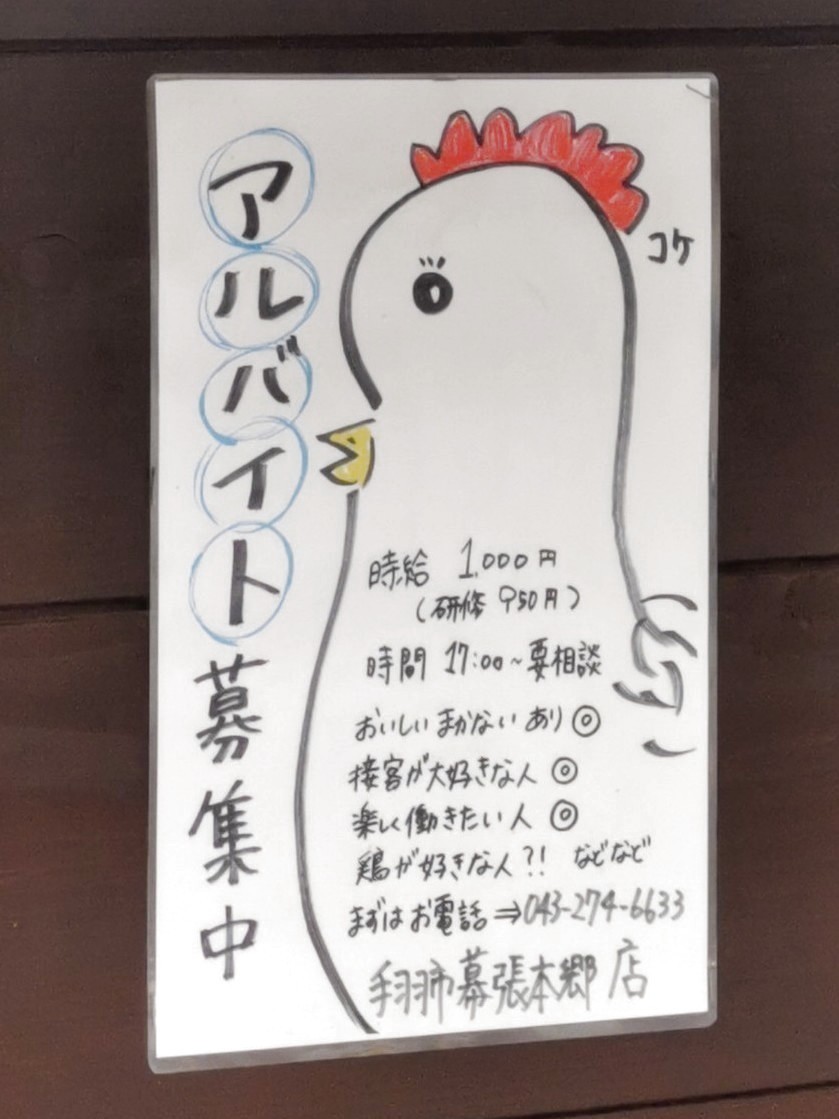 アルバイト募集中
コケ
時給 1,000円
(研修 950円)
時間 17:00~要相談
おいしい まかない あり◎
接客が大好きな人 ◎
楽しく働きたい人 ◎
鶏が好きな人?! などなど
まずは お電話 ⇒043-274-6633
手羽市幕張本郷 店